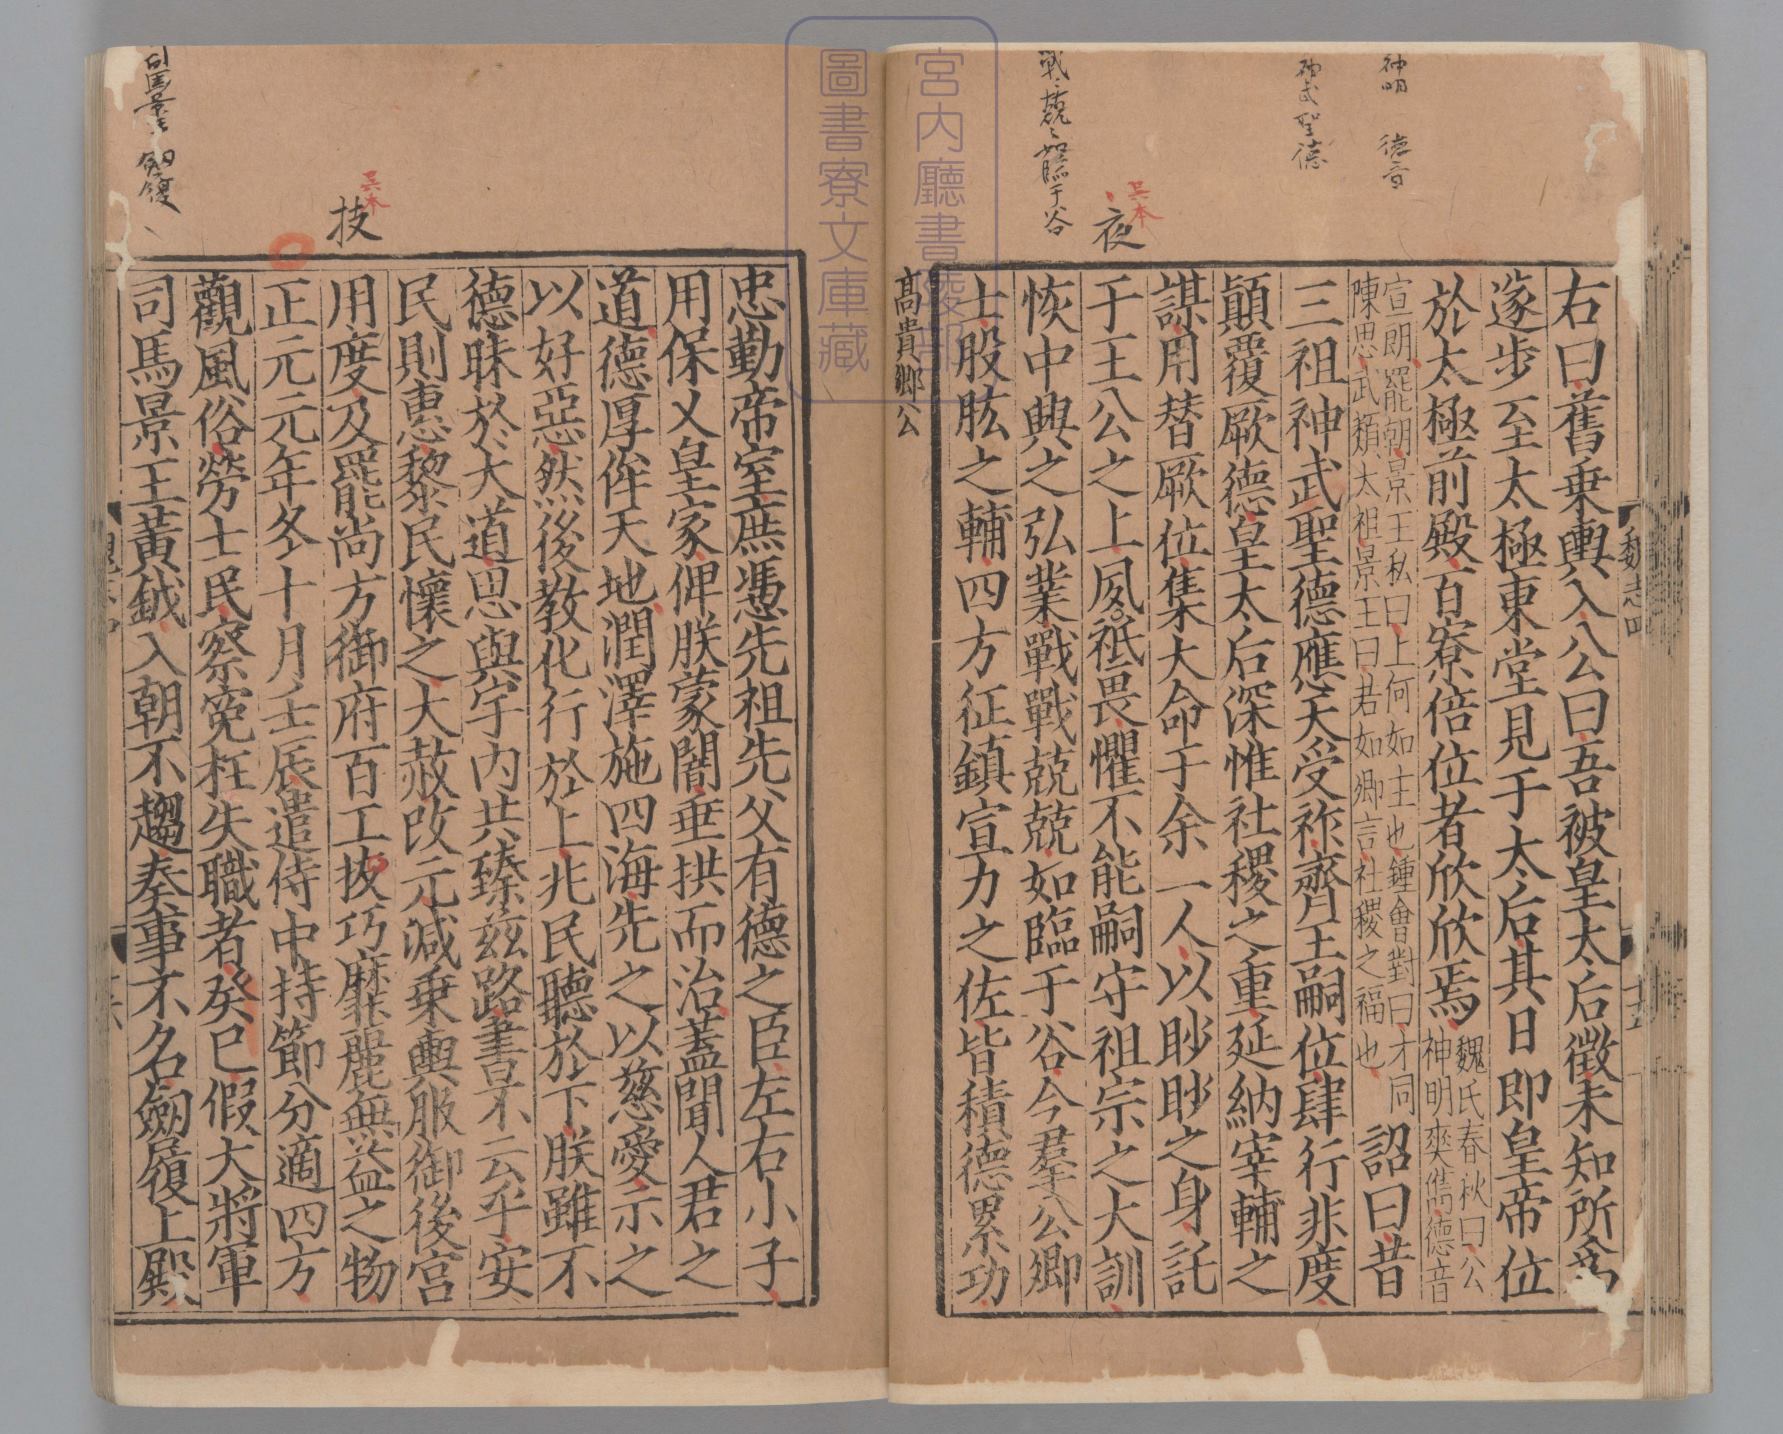 神明 德音
神武聖德
戰〻兢〻如臨于谷
吴本
夜
右曰舊乗輿入公曰吾被皇太后徵未知所爲
遂步至太極東堂見于太后其日即皇帝位
於太極前殿百寮倍位者欣欣焉
魏氏春秋曰公
神明爽儁德音
宣朗罷朝景王私曰上何如主也鍾會對曰才同
陳思武類太祖景王曰若如卿言社稷之福也
詔曰昔
三祖神武聖德應天受祚齊王嗣位肆行非度
顛覆厥德皇太后深惟社稷之重延納宰輔之
謀用替厥位集大命于余一人以眇眇之身託
于王公之上夙祗畏懼不能嗣守祖宗之大訓
恢中興之弘業戰戰兢兢如臨于谷今羣公卿
士股肱之輔四方征鎮宣力之佐皆積德累功
髙貴郷公
魏志四
十五
宮内廳書陵部
圖書寮文庫藏
忠勤帝室庶憑先祖先父有德之臣左右小子
用保乂皇家俾朕蒙闇垂拱而治蓋聞人君之
道德厚侔天地潤澤施四海先之以慈愛示之
以好惡然後教化行於上兆民聽於下朕雖不
德昧於大道思與宇内共臻兹路書不云乎安
民則惠黎民懷之大赦改元減乗輿服御後宫
用度及罷尚方御府百工抜巧靡麗無益之物
正元元年冬十月壬辰遣侍中持節分適四方
觀風俗勞士民察寃枉失職者癸巳假大將軍
司馬景王黄鉞入朝不趨奏事不名劒履上殿
吴本
技
司馬景王 劒履